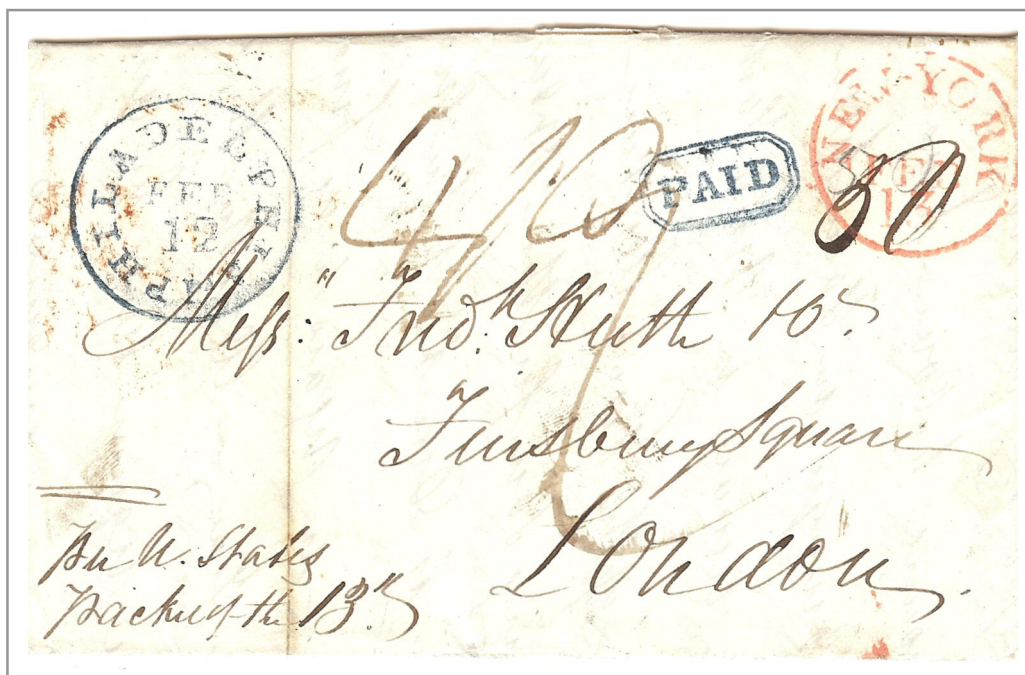 PHILADELPHIA
FEB
12
PAID
NEW-YORK
30
Messrs: Fredk Huth &Co.
Finsbury Square
London.
Per U. States
Packet of the 13th